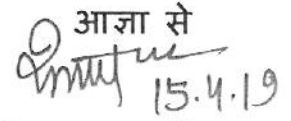 आज्ञा से
15.4.19